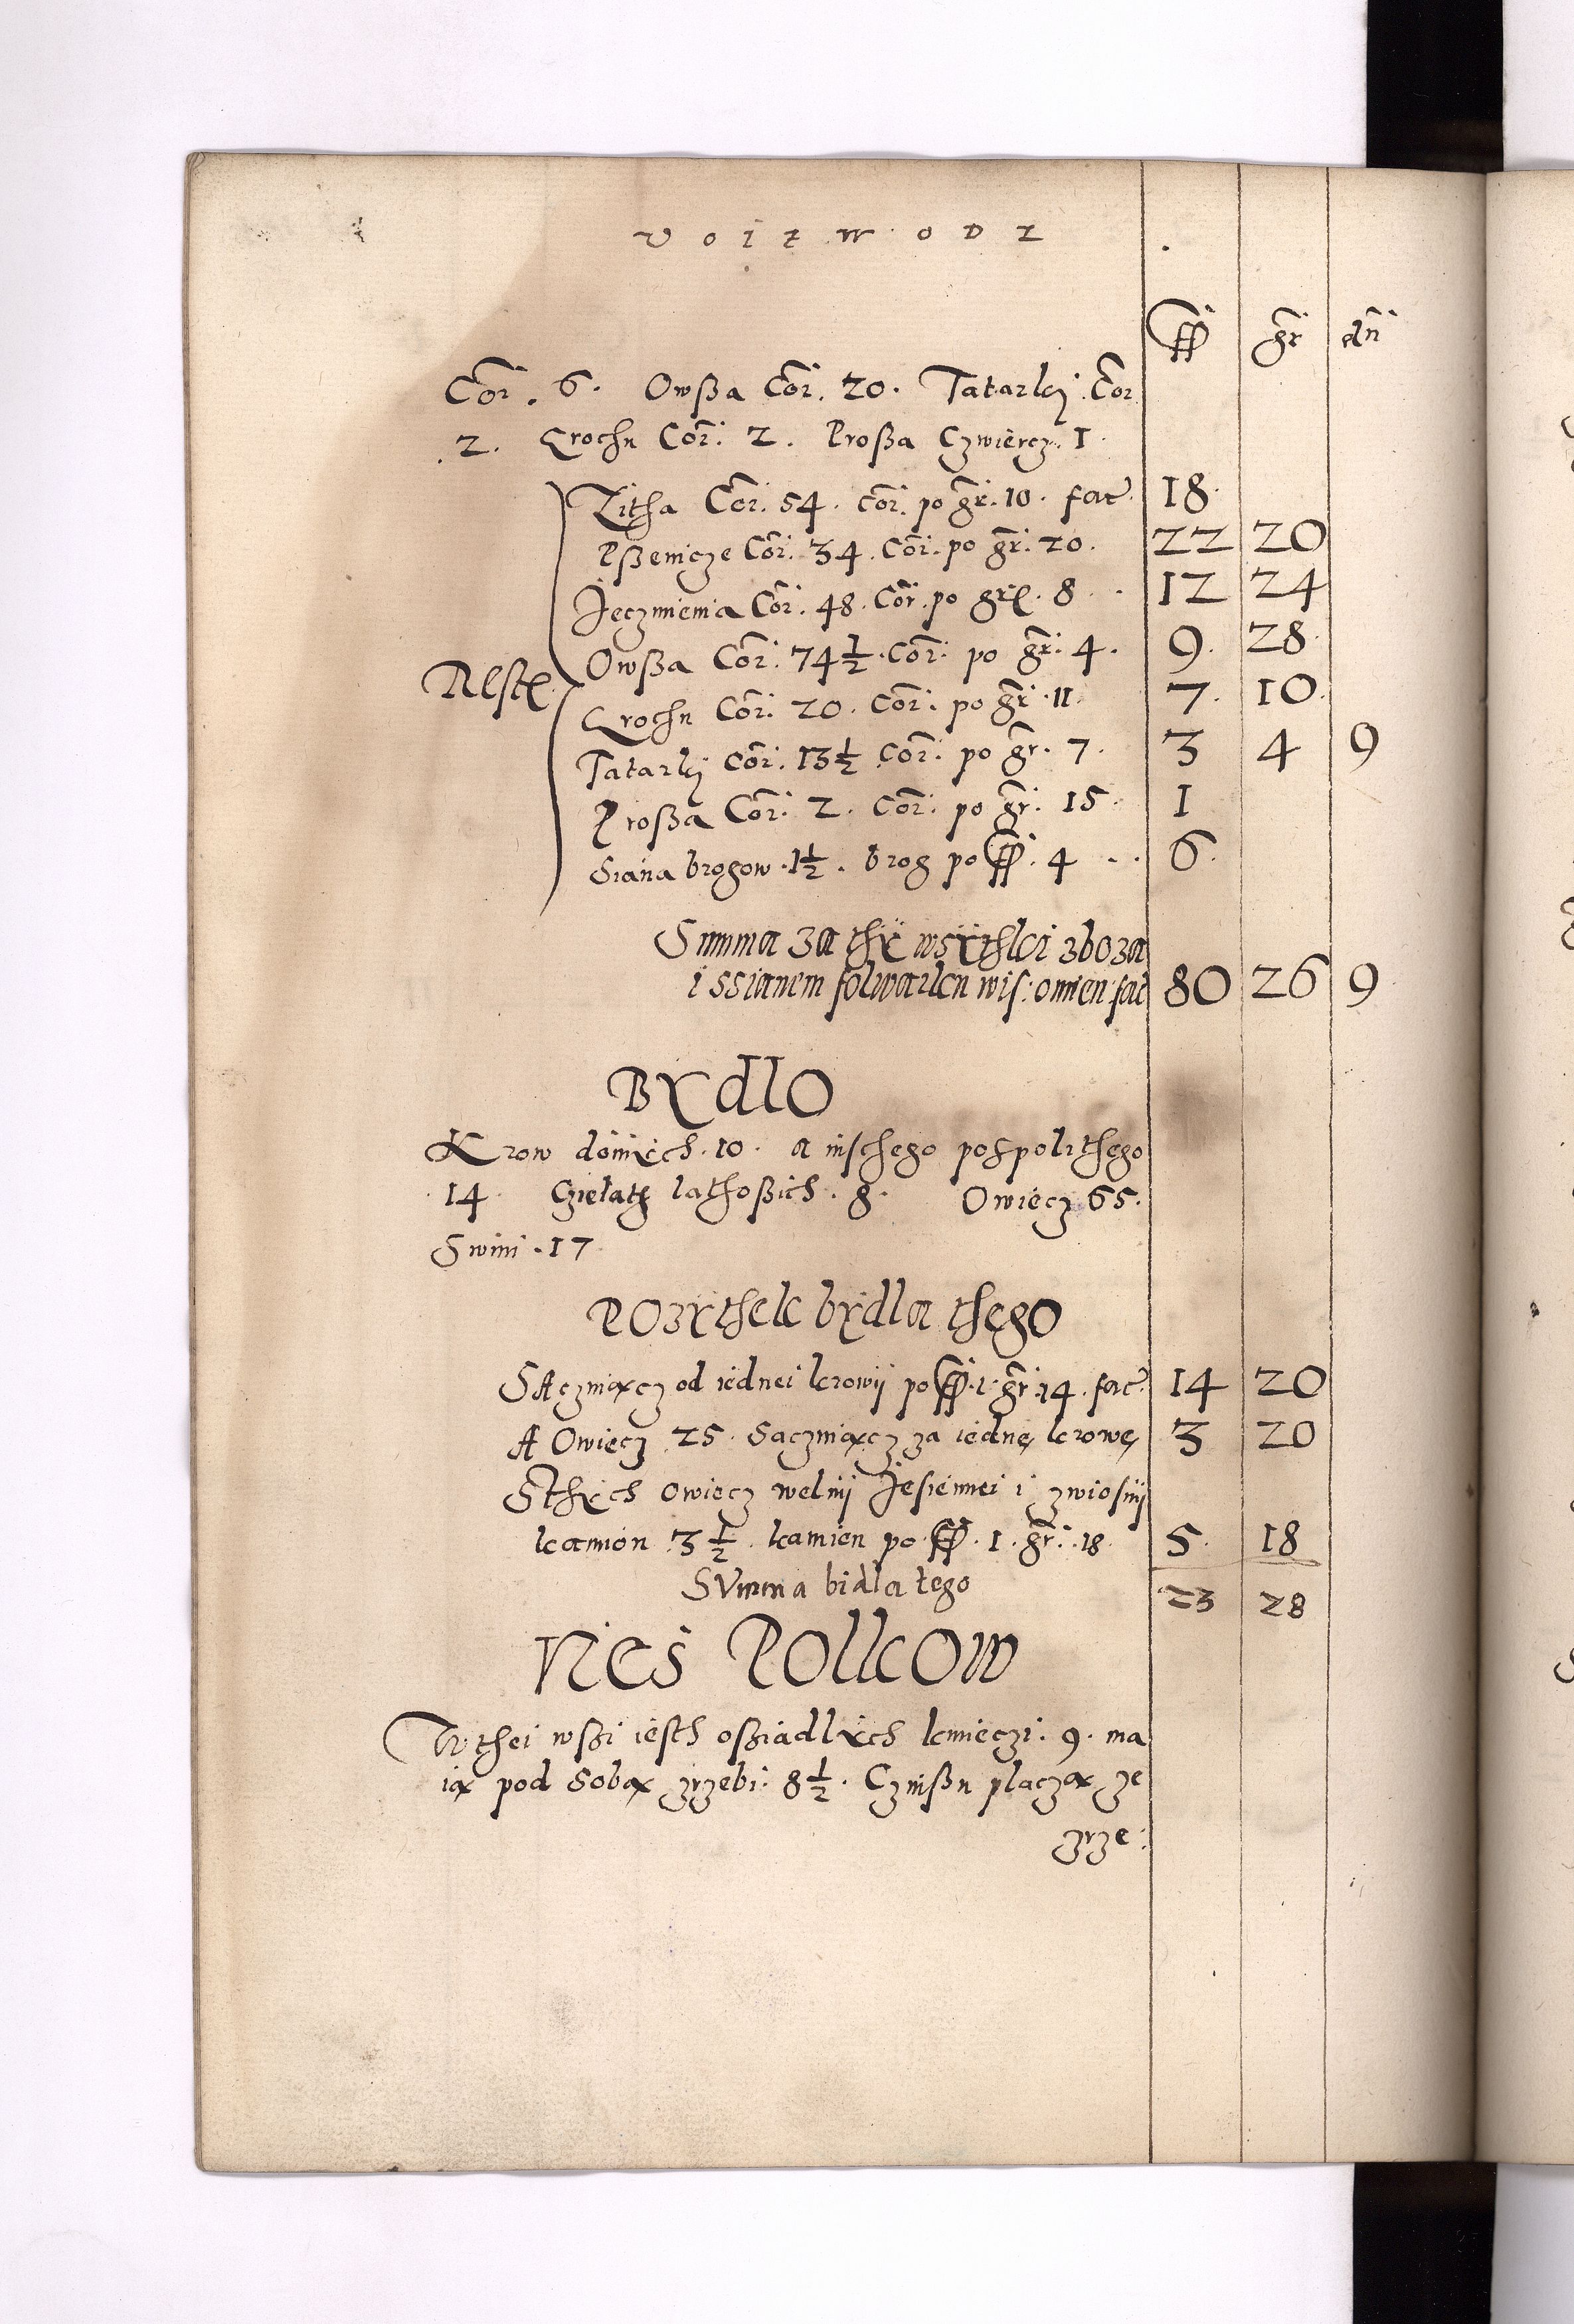 V o i e w o d z
ff gr dn
Cor. 6. Owßa Cor. 20. Tatarky Cor
2. Grochu Cor. 2. Proßa Czwiercz. 1
Zitha Cor. 54. Cor. po gr. 10. fac 18
Pßenicze Cor. 34. Cor. po gr. 20. 22 20
Jeczmienia Cor. 48. Cor. po gr. 8 12 24
Owßa Cor. 74 1/2. Cor. po gr. 4. 9. 28
Rest
Grochu Cor. 20. Cor. po gr. 11 7. 10.
Tatarky Cor. 13 1/2 Cor. po gr. 7. 3 4 9
Proßa Cor. 2. Cor. po gr. 15 1
Siana brogow. 1 1/2. brog po ff. 4 6.
Summa za thy wsythki zboza
i ssianem folwarku wis: omen fac 80 26 9
Bydlo
Krow doinych. 10. a inschego pospolithego
14 Czieląth lathoßich. 8. Owiecz 65.
Swini. 17
Pozythek bydla thego
Saczniącz od iednei krowy po ff. 1. gr. 14. fac. 14 20
A Owiecz 25. Saczniącz za iednę krowę 3 20
Sthych owiecz welny Jesiennei i zwiosny
kamion 3 1/2. kamien po ff. 1. gr. 18 5. 18
Summa bidla tego 23 28
Vies Polkow
W thei wßi iesth oßiadlych kmieczi. 9. ma
ią pod Sobą zrzebi. 8 1/2. Czinßu placzą ze
zrze: